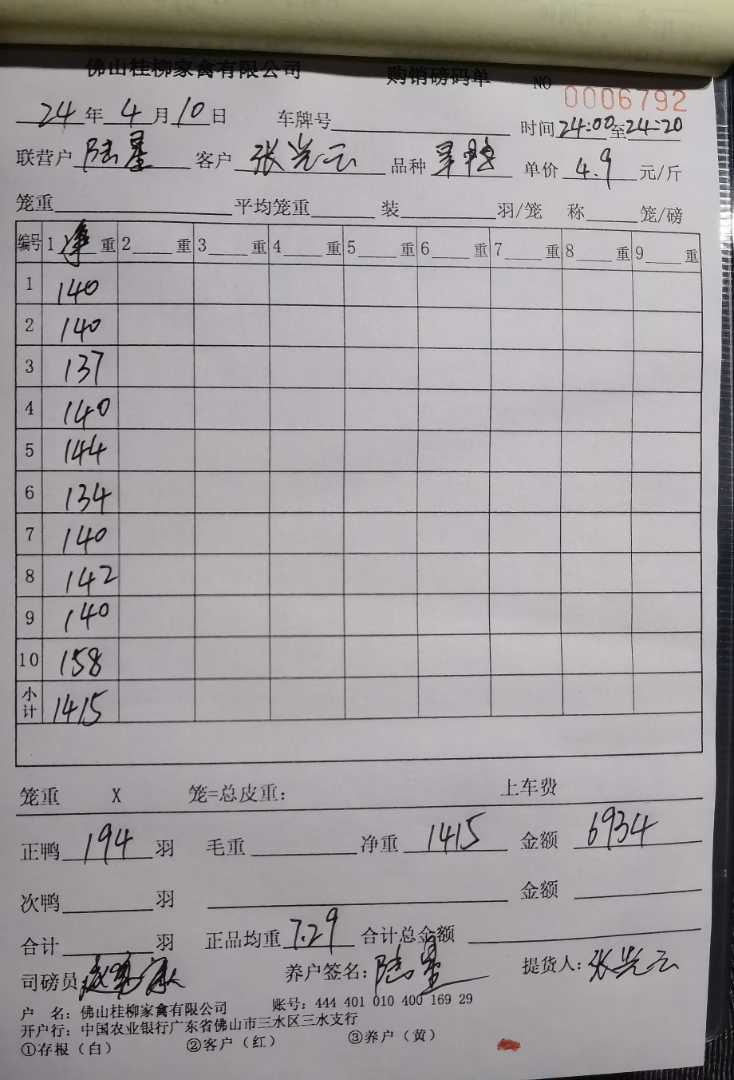 佛山桂柳家禽有限公司 购销磅码单 NO 0006792
24年4月10日 车牌号 时间24:00至24:20
联营户 陆星 客户 张光云 品种 单价 4.9 元/斤
笼重 平均笼重 装 羽/笼 称 笼/磅
编号 1 净 重 2 重 3 重 4 重 5 重 6 重 7 重 8 重 9 重
1 140
2 140
3 137
4 140
5 144
6 134
7 140
8 142
9 140
10 158
小计 1415
笼重 X 笼=总皮重: 上车费
正鸭 194 羽 毛重 净重 1415 金额 6934
次鸭 羽 金额
合计 羽 正品均重 7.29 合计总金额
司磅员: 养户签名: 陆星 提货人: 张光云
户 名: 佛山桂柳家禽有限公司 账号: 444 401 010 400 169 29
开户行: 中国农业银行广东省佛山市三水区三水支行
①存根(白) ②客户(红) ③养户(黄)